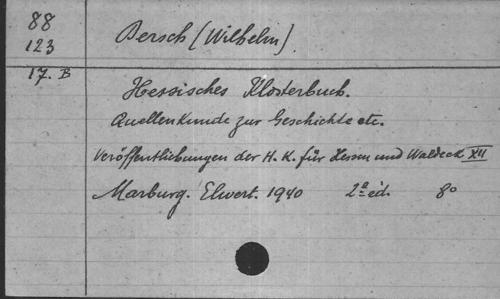 88
123
17. B
Dersch (Wilhelm)
Hessisches Klosterbuch.
Quellenkunde zur Geschichte etc.
Veröffentlichungen der H. K. für Hessen und Waldeck XII
Marburg. Elwert. 1940 2ª éd. 8º